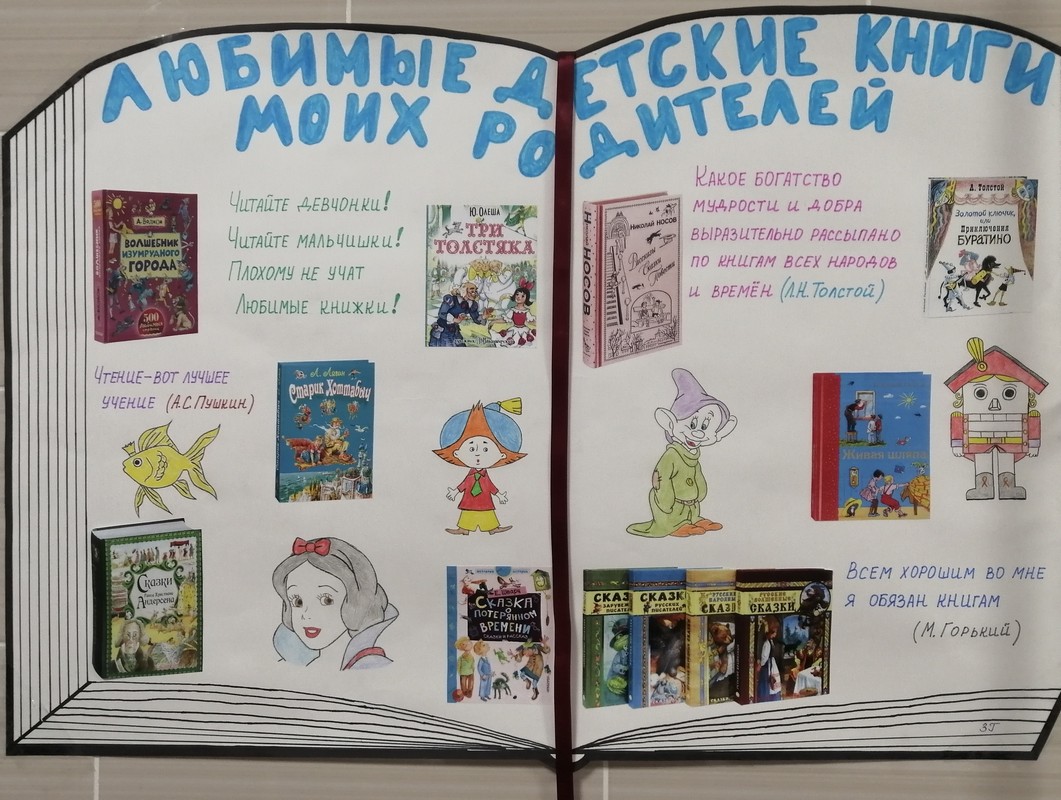 ЛЮБИМЫЕ ДЕТСКИЕ КНИГИ
МОИХ РОДИТЕЛЕЙ
А. Волков
ВОЛШЕБНИК
ИЗУМРУДНОГО
ГОРОДА
500
Читайте девчонки!
Читайте мальчишки!
Плохому не учат
Любимые книжки!
Ю. Олеша
ТРИ
ТОЛСТЯКА
Чтение-вот лучшее
учение (А.С. Пушкин)
Л. Лагин
Старик Хоттабыч
Сказки
Ганса Христиана
Андерсена
Е. Шварц
СКАЗКА
О
ПОТЕРЯННОМ
ВРЕМЕНИ
СКАЗКИ И РАССКАЗЫ
Н. НОСОВ
Николай Носов
Рассказы
Сказки
Повести
Какое богатство
мудрости и добра
выразительно рассыпано
по книгам всех народов
и времён (Л.Н. Толстой)
А. Толстой
Золотой ключик,
или
Приключения
БУРАТИНО
Живая шляпа
СКАЗ
ЗАРУБЕЖ
ПИСАТЕЛ
СКАЗКИ
РУССКИХ
ПИСАТЕЛЕЙ
РУССКИЕ
НАРОДНЫ
СКАЗ
РУССКИЕ
ВОЛШЕБНЫЕ
СКАЗКИ
Всем хорошим во мне
я обязан книгам
(М. Горький)
3Г